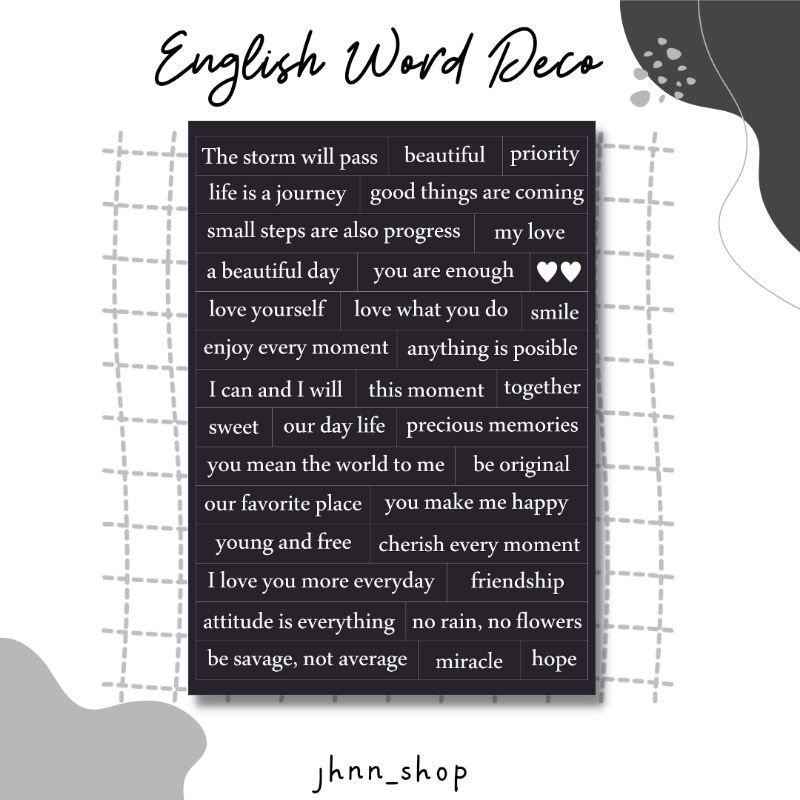 English Word Deco
The storm will pass beautiful priority
life is a journey good things are coming
small steps are also progress my love
a beautiful day you are enough
love yourself love what you do smile
enjoy every moment anything is posible
I can and I will this moment together
sweet our day life precious memories
you mean the world to me be original
our favorite place you make me happy
young and free cherish every moment
I love you more everyday friendship
attitude is everything no rain, no flowers
be savage, not average miracle hope
jhnn_shop